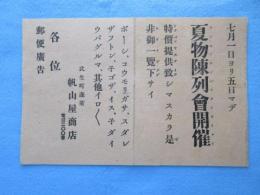 七月一日ヨリ五日マデ
夏物陳列會開催
特價提供致シマスカラ是
非御一覽下サイ
ボーシ、コウモリガサ、スダレ
ザフトン、モゴザ、イス、モダイ
ウバグルマ、其他イロ〱
武生町蓬萊
帆山屋商店
電三三〇番
各位
郵便廣告